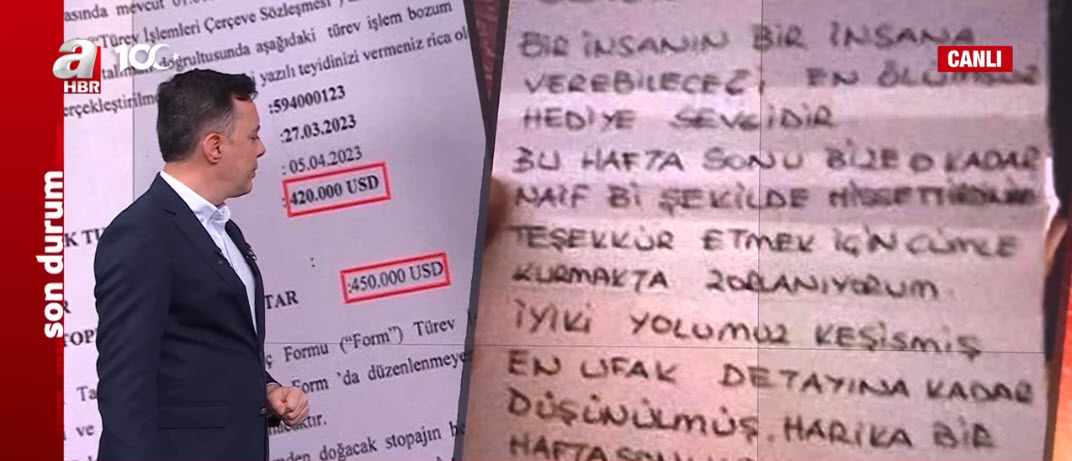 a
HBR
100
CANLI
son durum
asında mevcut
"Türev İşlemleri Çerçeve Sözleşmesi
doğrultusunda aşağıdaki türev işlem bozum
yazılı teyidinizi vermeniz rica
:594000123
:27.03.2023
: 05.04.2023
:420.000 USD
:
:450.000 USD
TAR
Formu ("Form") Türev
Form 'da düzenlenmeye
doğacak stopajın
BİR İNSANIN BİR İNSANA
VEREBİLECEĞİ EN
HEDİYE SEVGİDİR
BU HAFTA SONU BİZE O KADAR
NAİF Bİ ŞEKİLDE
TEŞEKKÜR ETMEK İÇİN CÜMLE
KURMAKTA ZORLANIYORUM.
İYİKİ YOLUMUZ KEŞİSMİŞ
EN UFAK DETAYINA KADAR
DÜŞÜNÜLMÜŞ. HARİKA BİR